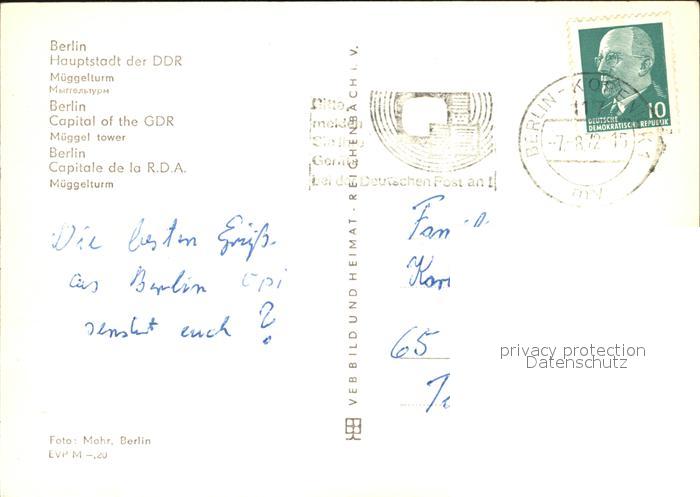 Berlin
Hauptstadt der DDR
Müggelturm
Мюггельтурм
Berlin
Capital of the GDR
Müggel tower
Berlin
Capitale de la R.D.A.
Müggelturm
Die besten Grüß
aus Berlin
sendet euch
Foto: Mohr, Berlin
EVP M –,20
VEB BILD UND HEIMAT · REICHENBACH I. V.
Bitte
bei der Deutschen Post an!
BERLIN-
-7.-8.72-15
DEUTSCHE
DEMOKRATISCHE REPUBLIK
10
65
privacy protection
Datenschutz